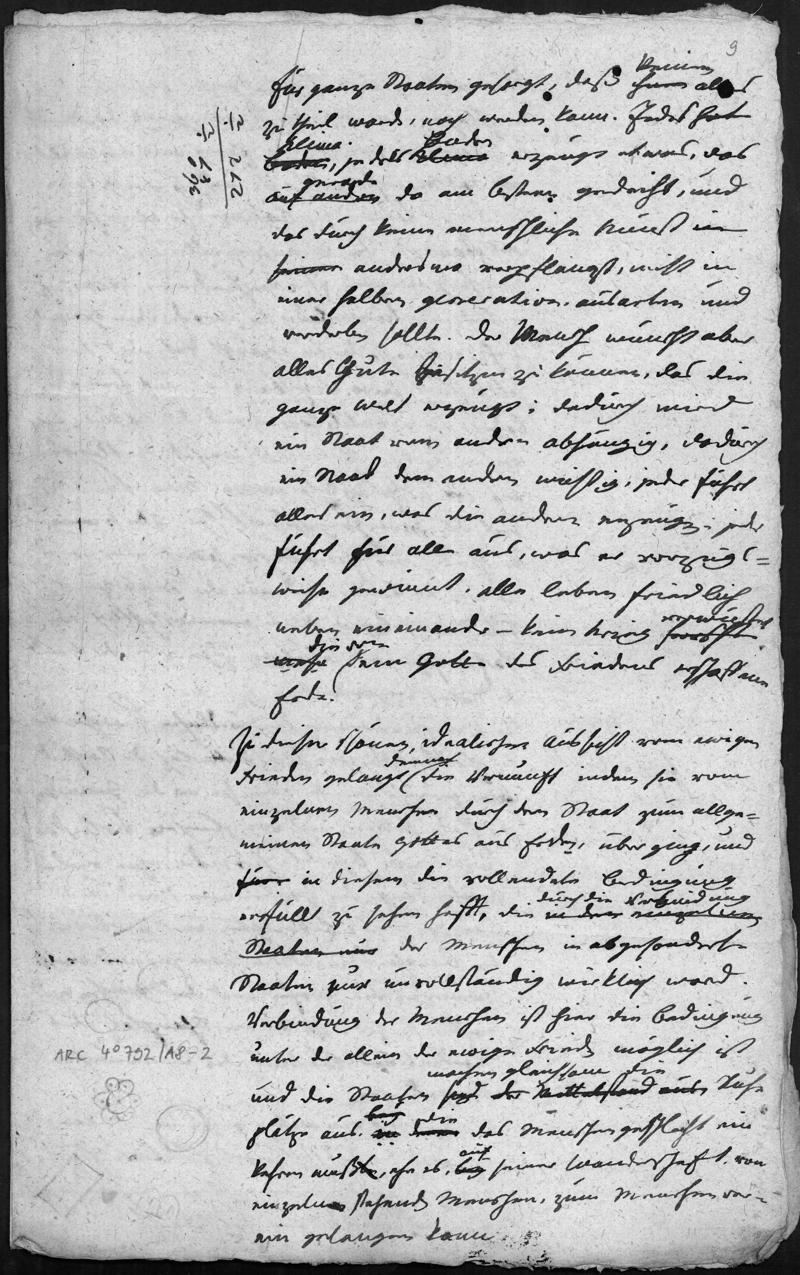 9
für ganze Staaten gesorgt, daß keinem alles
zu theil ward, noch werden kann. Jedes hat
Clima, jedes Boden erzeugt etwas, das
gerade da am besten gedeiht, und
das durch keine menschliche Kunst
anderswo verpflanzt, nicht in
einer halben generation ausarten und
verderben sollte. Der Mensch wünscht aber
alles Gute besitzen zu können, das die
ganze Welt erzeugt; dadurch wird
ein Staat vom andern abhängig, dadurch
ein Staat dem andern wichtig, jeder führt
alles ein, was die andern erzeugen, jeder
führt für alle aus, was er vorzugs=
weise gewinnt. alle leben friedlich
neben einander – kein Krieg verwüstet
die vom Gotte des Friedens erschaffene
Erde.
Zu dieser schönen, idealischen Aussicht vom ewigen
Frieden gelangt demnach die Vernunft indem sie vom
einzelnen Menschen durch den Staat zum allge=
meinen Staate Gottes auf Erden, über ging, und
in diesem die vollendete Bedingung
erfüllt zu sehen hofft, die durch die Verbindung
der Menschen in abgesonderte
Staaten nur unvollständig wirklich ward.
Verbindung der Menschen ist hier die Bedingung
unter der allein der ewige Friede möglich ist
und die Staaten machen gleichsam die Ruhe
plätze aus, bey die das Menschengeschlecht ein
kehren mußte, ehe es, auf seiner Wanderschaft, von
einzeln stehenden Menschen, zum Menschenver=
ein gelangen kann.
212
ARC 4° 792/A8-2